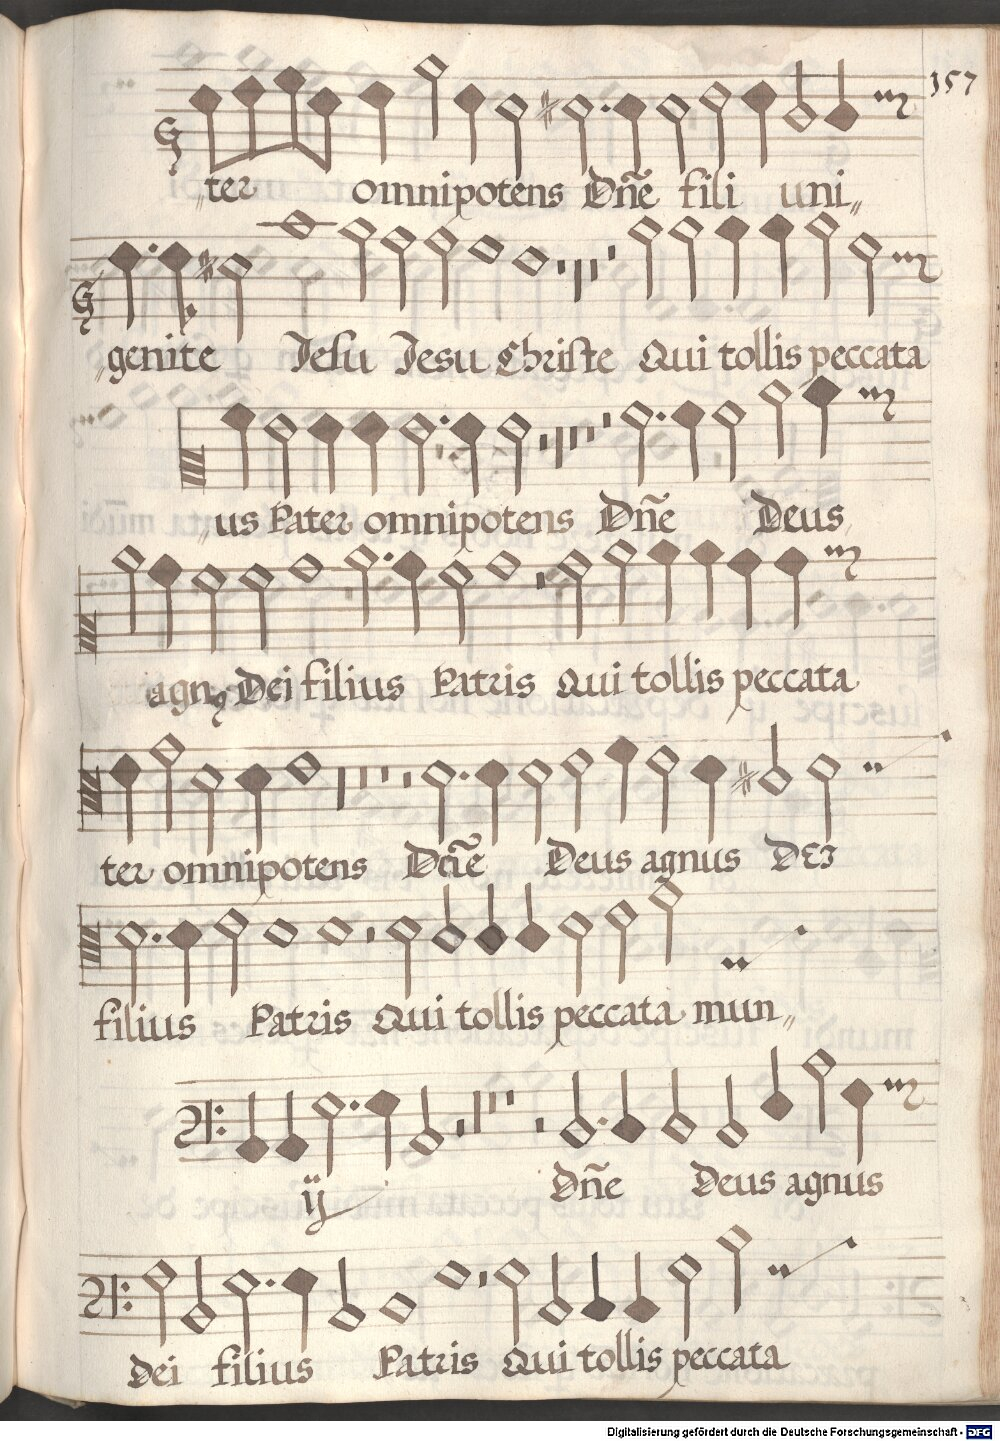 157
„ter omnipotens Dñe fili uni„
„genite Jesu Jesu Christe Qui tollis peccata
„us Pater omnipotens Dñe Deus
agnꝰ Dei filius Patris Qui tollis peccata
ter omnipotens Dñe Deus agnus DEI
filius Patris Qui tollis peccata mun„
ij Dñe Deus agnus
Dei filius Patris Qui tollis peccata
Digitalisierung gefördert durch die Deutsche Forschungsgemeinschaft - DFG